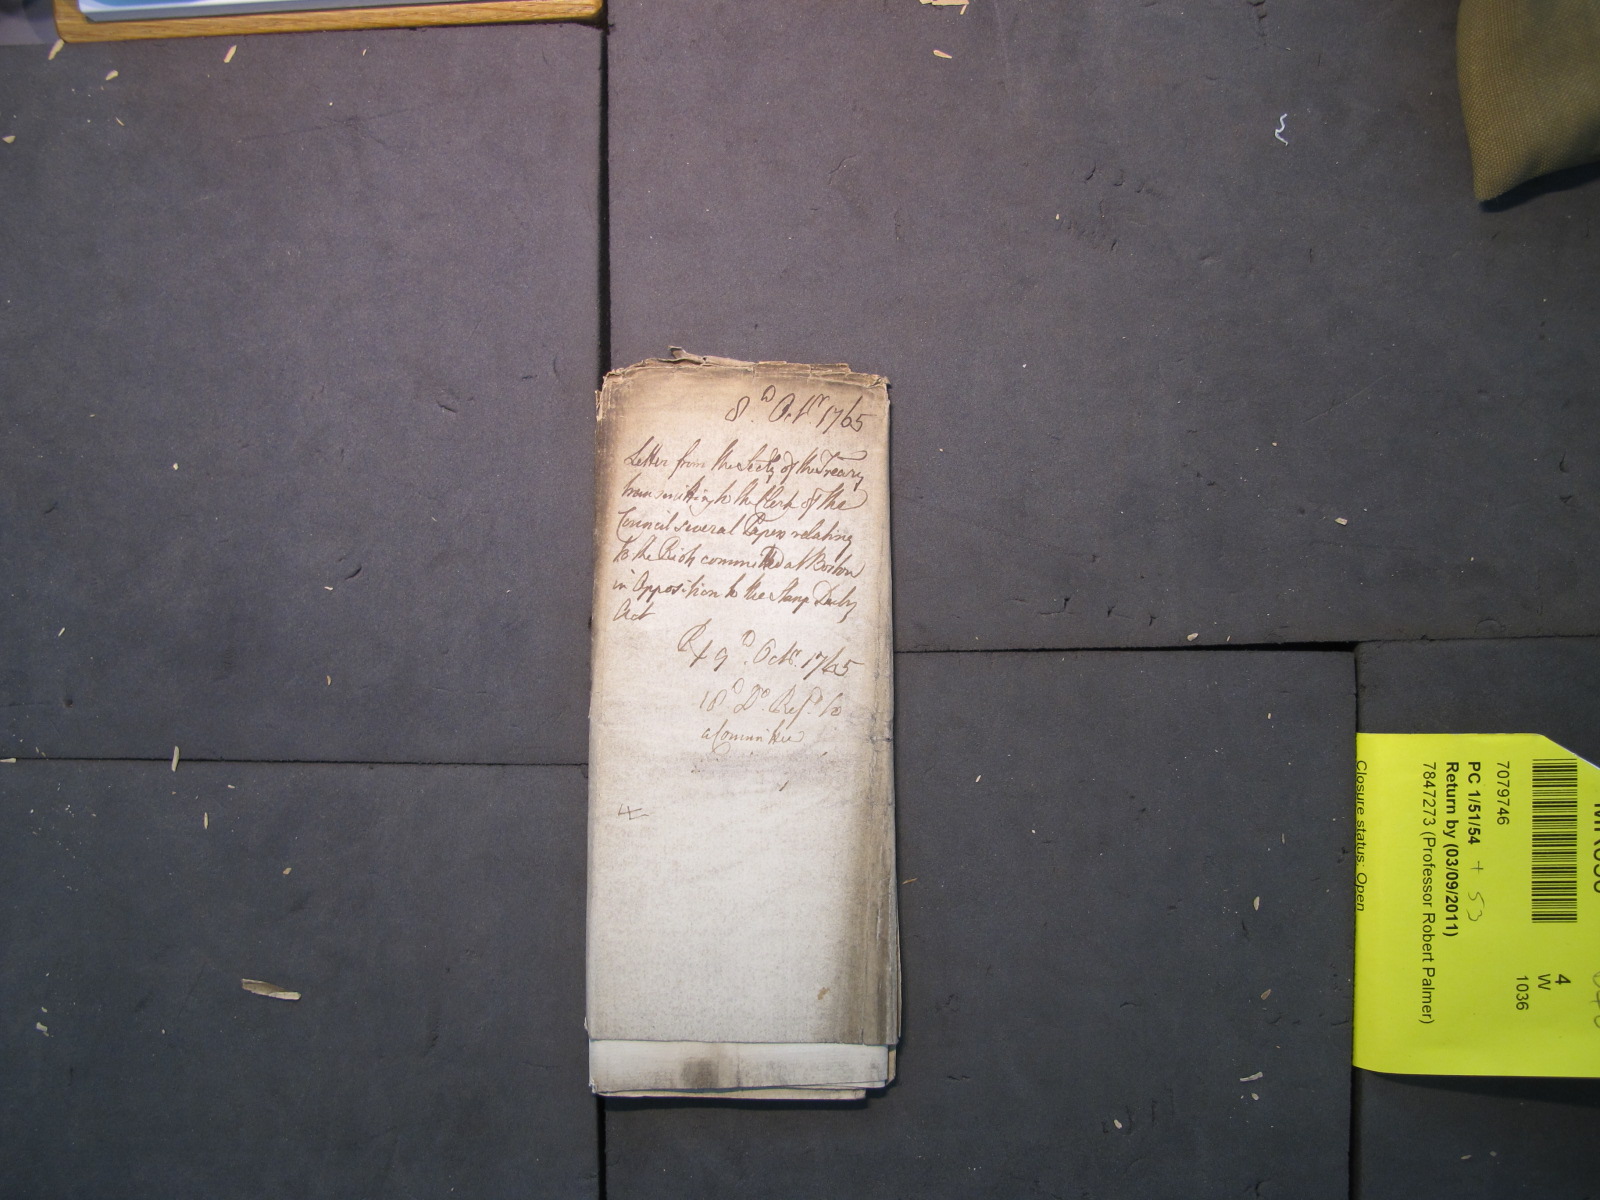 8.th Octr. 1765
Letter from the Secty of the Treasy
transmitting to the Clerk of the
Council several Papers relating
to the Riots committed at Boston
in Opposition to the Stamp Duty
Act
Rd 9th. Octr. 1765
18th Do. Refd. to
a Committee
7079746
PC 1/51/54 + 53
Return by (03/09/2011)
7847273 (Professor Robert Palmer)
Closure status: Open
4
W
1036